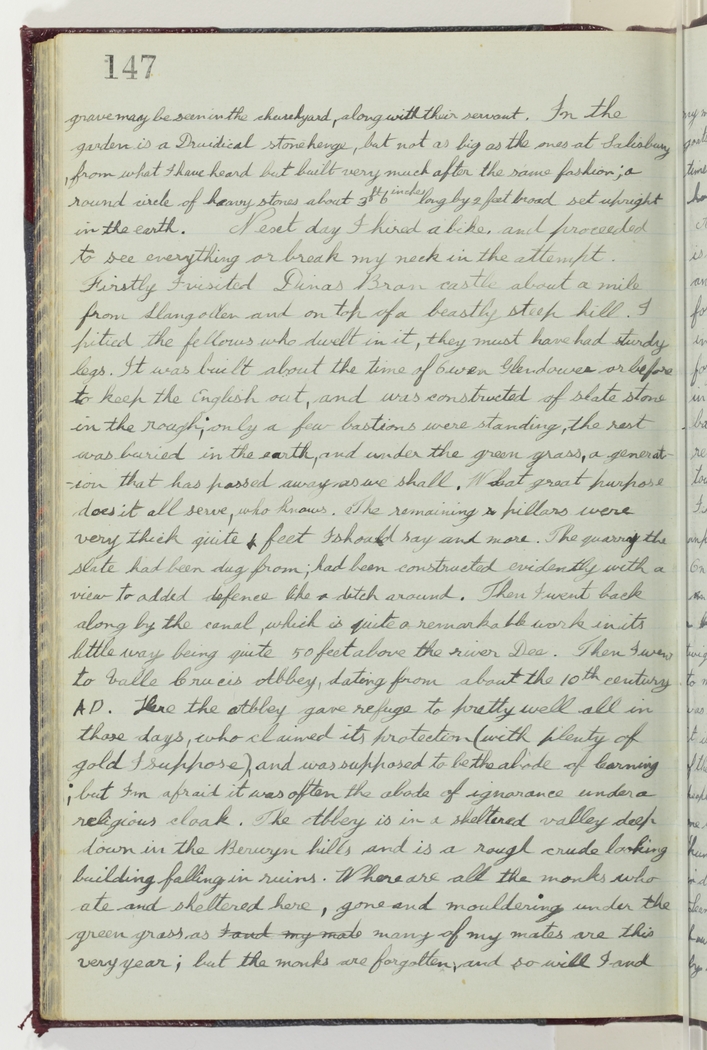 147
grave may be seen in the churchyard, along with their servant. In the
garden is a Druidical stonehenge, but not as big as the ones at Salisbury
, from what I have heard but built very much after the same fashion; a
round circle of heavy stones about 3ft 6 inches long by 2 feet broad set upright
in the earth. Next day I hired a bike. and proceeded
to see everything or break my neck in the attempt.
Firstly I visited Dinas Bran castle about a mile
from Llangollen and on top of a beastly steep hill. I
pitied the fellows who dwelt in it, they must have had sturdy
legs. It was built about the time of Owen Glendower or before
to keep the English out, and was constructed of slate stone
in the rough; only a few bastions were standing, the rest
was buried in the earth, and under the green grass, a generat-
-ion that has passed away as we shall. What great purpose
does it all serve, who knows. The remaining pillars were
very thick quite feet I should say and more. The quarry the
slate had been dug from; had been constructed evidently with a
view to added defence like a ditch around. Then I went back
along by the canal, which is quite a remarkable work in its
little way being quite 50 feet above the river Dee. Then I went
to Valle Crucis Abbey, dating from about the 10th century
A.D. Here the Abbey gave refuge to pretty well all in
those days, who claimed its protection (with plenty of
gold I suppose), and was supposed to be the abode of learning
; but I'm afraid it was often the abode of ignorance under a
religious cloak. The Abbey is in a sheltered valley deep
down in the Berwyn hills and is a rough crude looking
building falling in ruins. Where are all the monks who
ate and sheltered here, gone and mouldering under the
green grass, as I and my mate many of my mates are this
very year; but the monks are forgotten, and so will I and